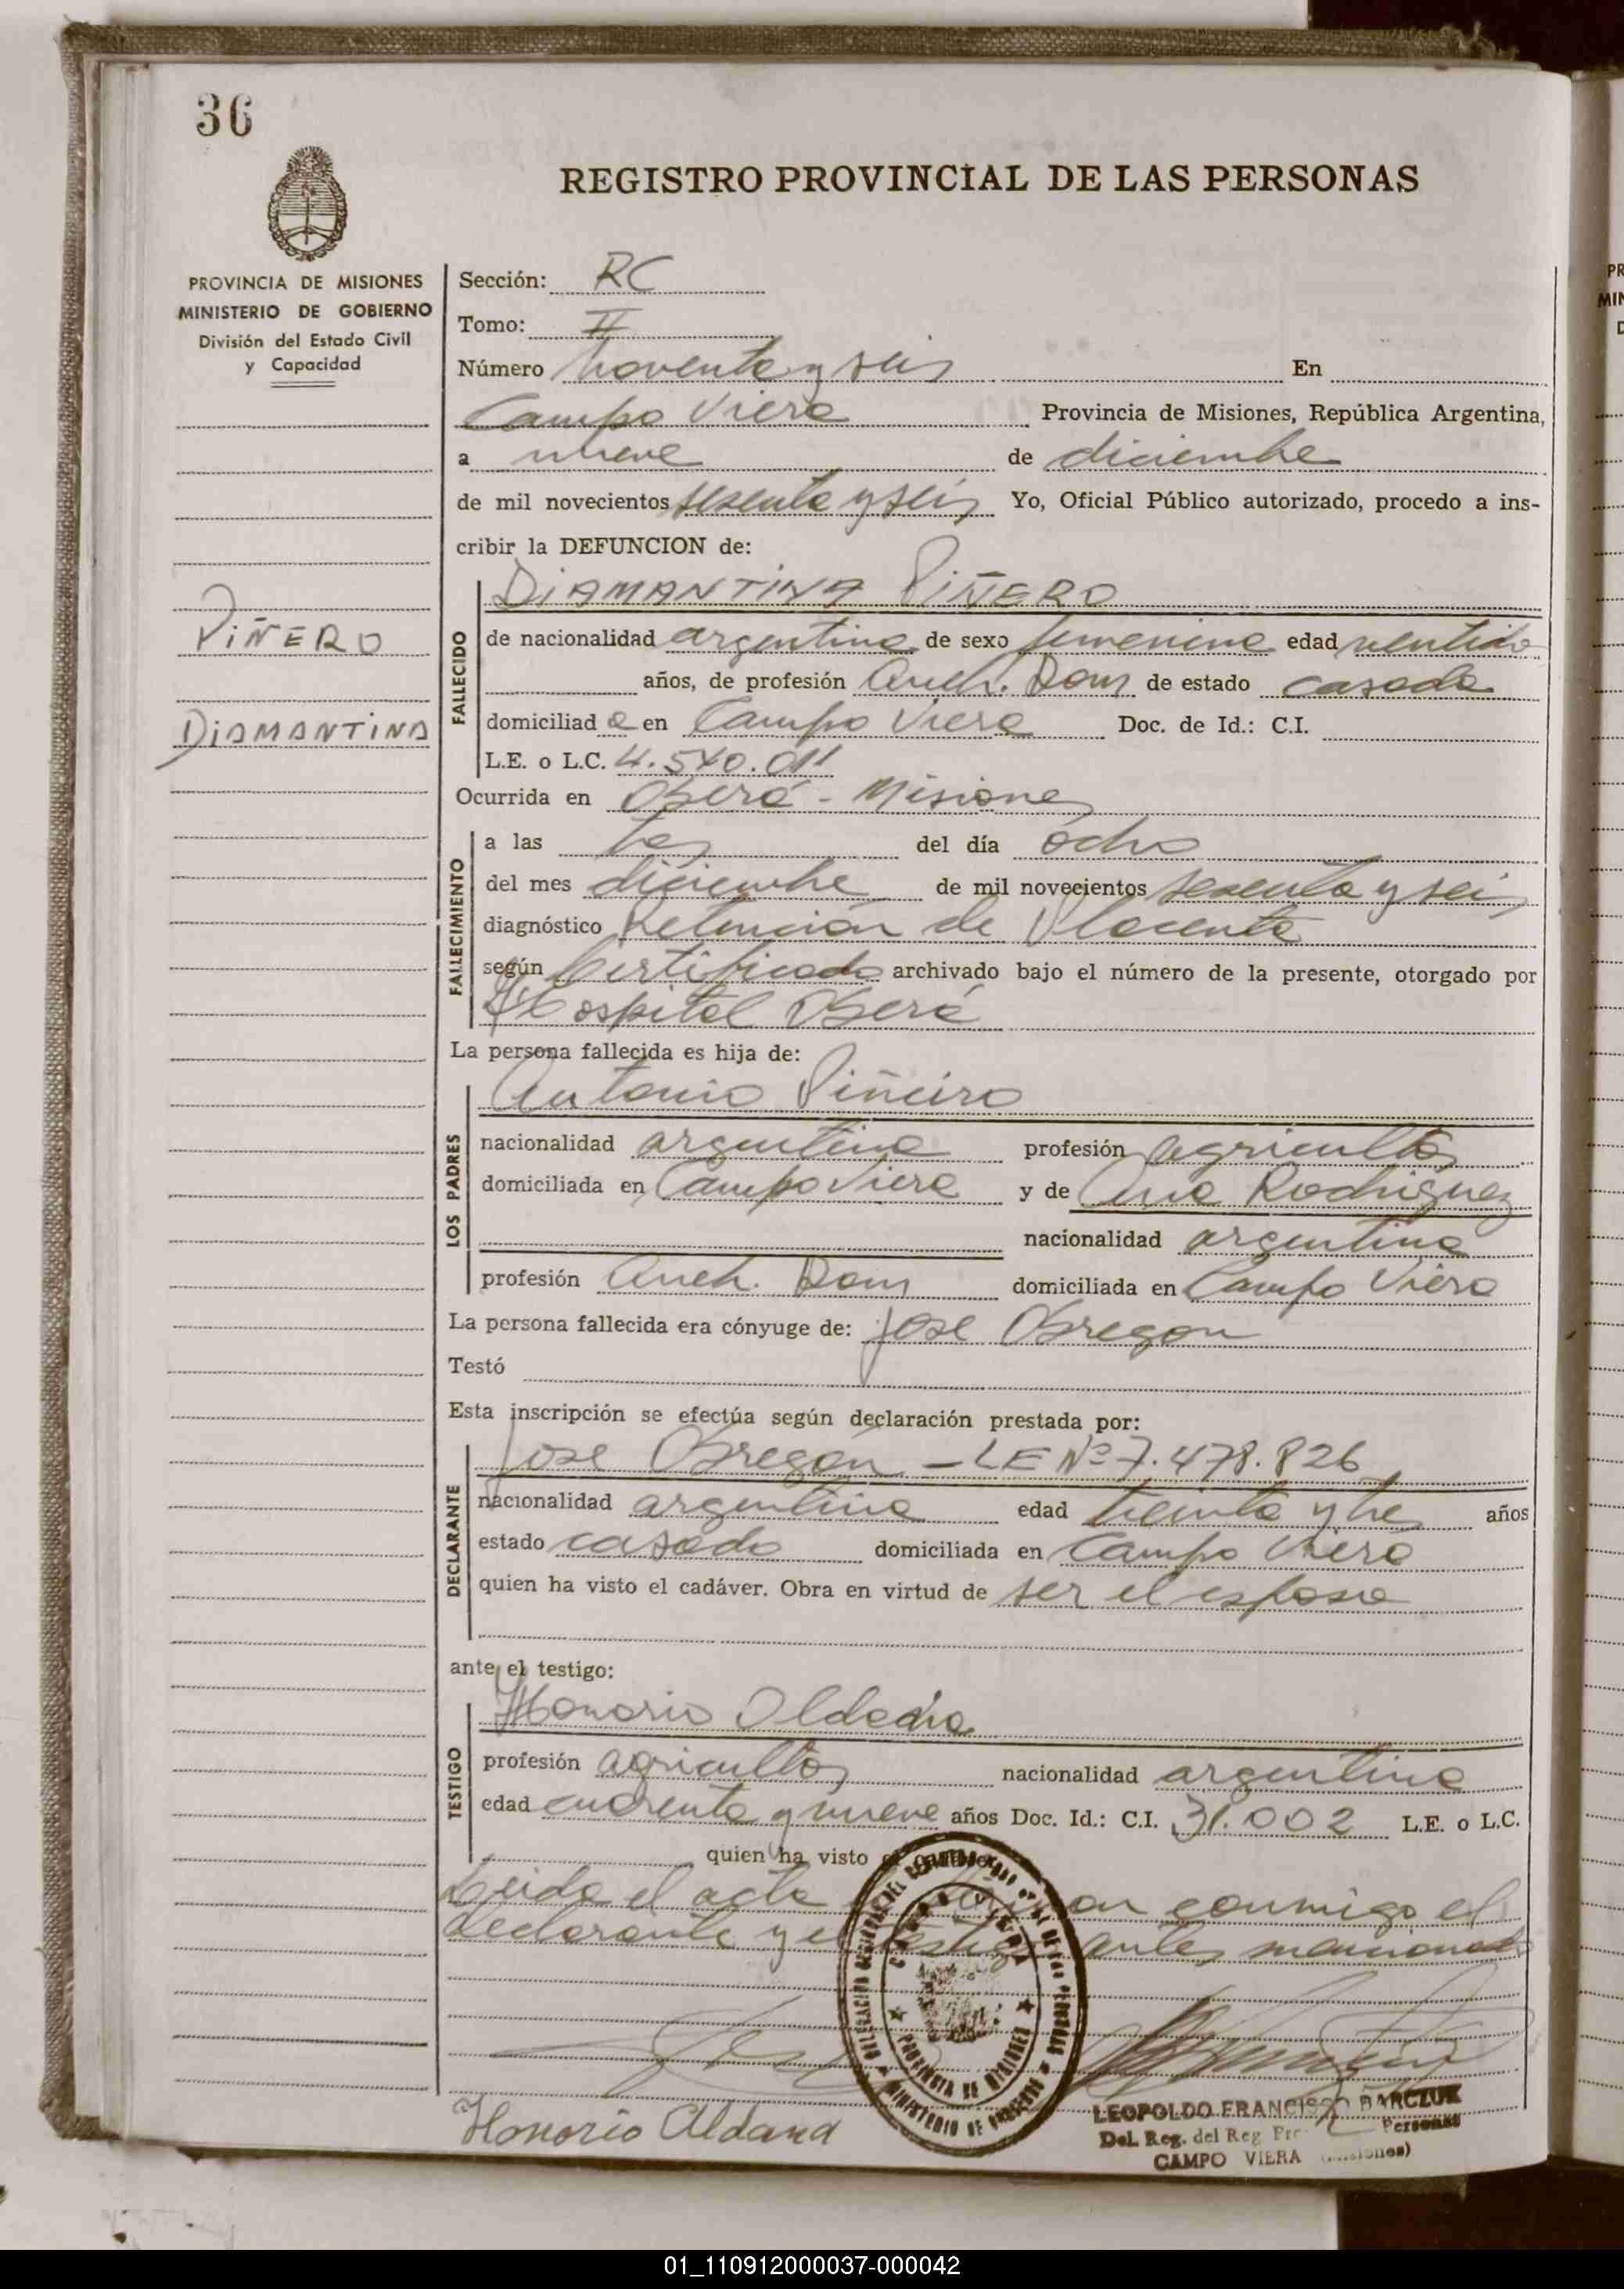 36
REGISTRO PROVINCIAL DE LAS PERSONAS
PROVINCIA DE MISIONES
MINISTERIO DE GOBIERNO
División del Estado Civil
y Capacidad
PIÑERO
DIAMANTINA
Sección: RC
Tomo: II
Número noventa y seis En
Campo Viera Provincia de Misiones, República Argentina,
a nueve de diciembre
de mil novecientos sesenta y seis Yo, Oficial Público autorizado, procedo a ins-
cribir la DEFUNCION de:
FALLECIDO
DIAMANTINA PIÑERO
de nacionalidad argentina de sexo femenino edad
años, de profesión Queh. Dom de estado casada
domiciliad a en Campo Viera Doc. de Id.: C.I.
L.E. o L.C. 4.540.011
Ocurrida en Oberá - Misiones
FALLECIMIENTO
a las tres del día ocho
del mes diciembre de mil novecientos sesenta y seis
diagnóstico Retención de Placenta
según Certificado archivado bajo el número de la presente, otorgado por
Hospital Oberá
La persona fallecida es hija de:
LOS PADRES
Antonio Piñeiro
nacionalidad argentina profesión agricultor
domiciliada en Campo Viera y de Ana Rodriguez
nacionalidad argentina
profesión Queh. Dom domiciliada en Campo Viera
La persona fallecida era cónyuge de: Jose Obregon
Testó
Esta inscripción se efectúa según declaración prestada por:
DECLARANTE
Jose Obregon - LE Nº 7.478.826
nacionalidad argentina edad treinta y tres años
estado casado domiciliada en Campo Viera
quien ha visto el cadáver. Obra en virtud de ser el esposo
ante el testigo:
TESTIGO
Honorio Aldana
profesión agricultor nacionalidad argentina
edad cuarenta y nueve años Doc. Id.: C.I. 31.002 L.E. o L.C.
quien ha visto el cadáver
Leida el acta conmigo el
declarante y el testigo antes mencionado
CAMPO VIERA
PROVINCIA DE MISIONES
MINISTERIO DE GOBIERNO
Honorio Aldana
LEOPOLDO FRANCISCO BARCZUK
Del. Reg. del Reg Personas
CAMPO VIERA (Misiones)
01_110912000037-000042